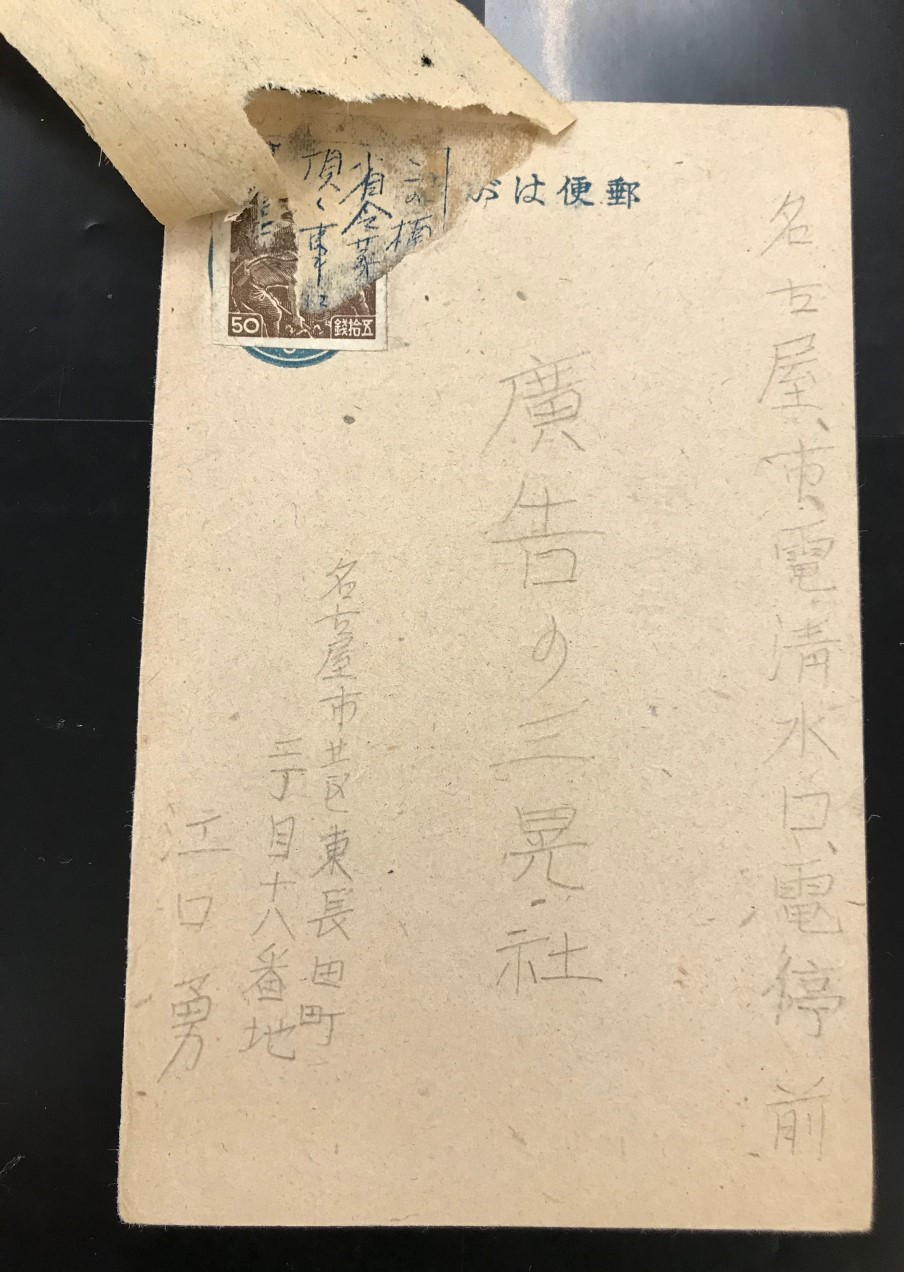 郵便はが
名古屋市電清水口電停前
廣告の三晃社
名古屋市北区東長田町
三丁目十八番地
江口勇
省令葉
頂く事に
50
五拾錢